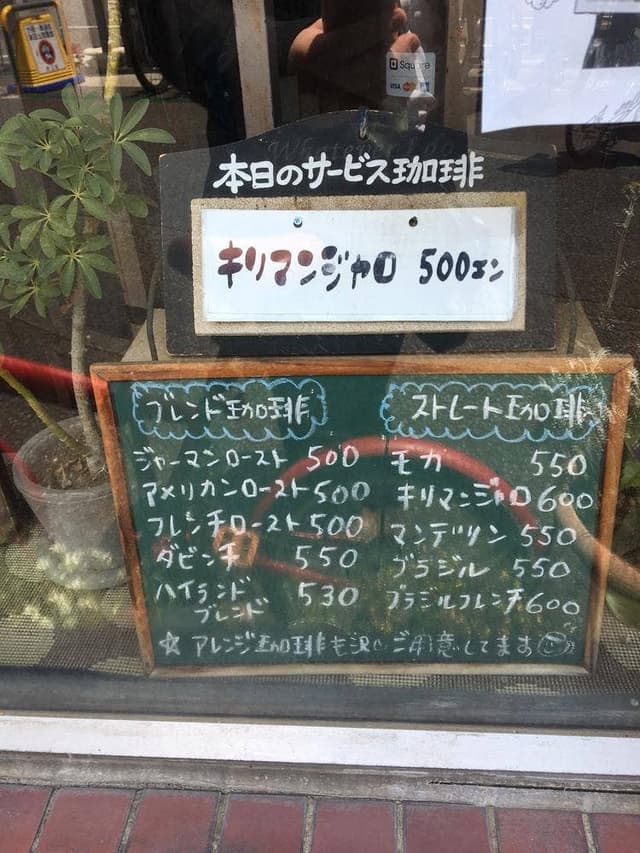 Square
VISA
本日のサービス珈琲
キリマンジャロ 500エン
ブレンド珈琲
ジャーマンロースト 500
アメリカンロースト 500
フレンチロースト 500
ダビンチ 550
ハイランド
ブレンド 530
ストレート珈琲
モカ 550
キリマンジャロ 600
マンデリン 550
ブラジル 550
ブラジルフレンチ 600
☆ アレンジ珈琲も沢山ご用意してます